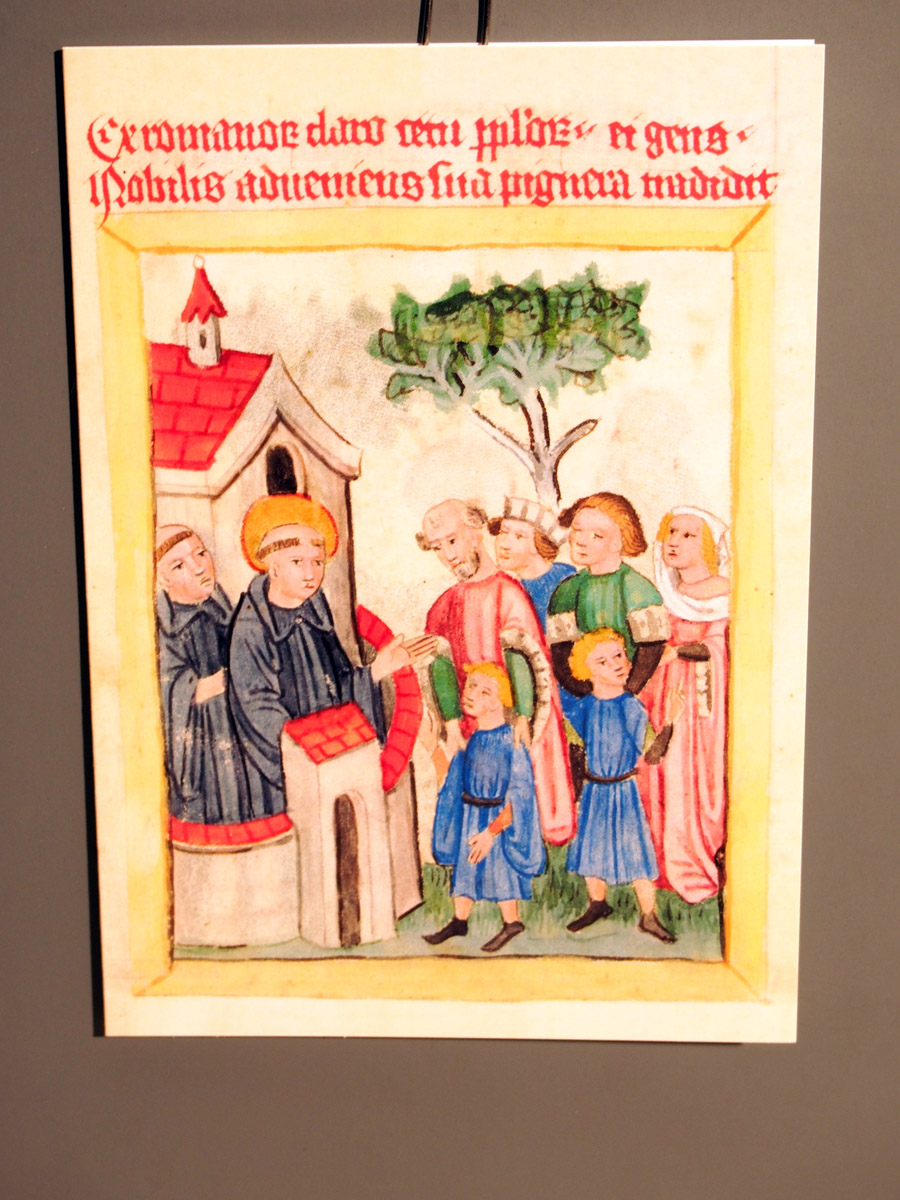 Ex romanoꝝ claro cetu ppl'oꝝ et gens
Nobilis adueniens sua pignera tradidit